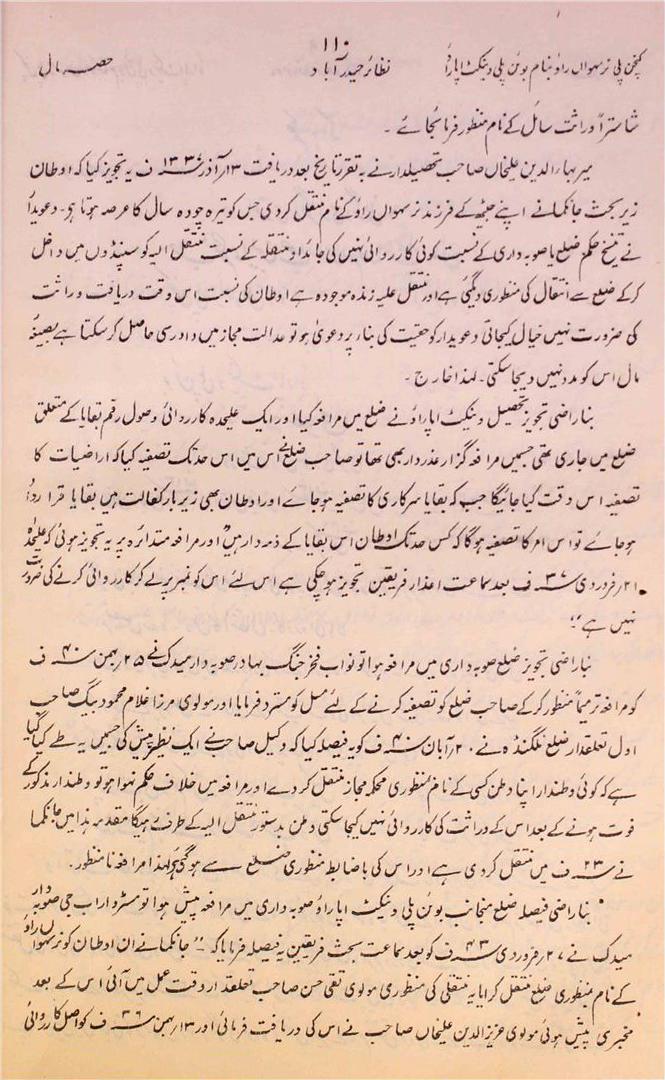 ۱۱۰
کچن پلی نرسہواں راؤ بنام بوئن پلی وینکٹ اپاراؤ نظائر حیدرآباد حصہ مال
شاستراً وراثت سائل کے نام منظور فرمائی جائے ۔
میر بہارالدین علیخاں صاحب تحصیلدار نے بہ تقرر تاریخ بعد دریافت ۱۳ آذر ف یہ تجویز کیا کہ اوطان
زیر بحث جانکما نے اپنے جیٹھ کے فرزند نرسہواں راؤ کے نام منتقل کردی جس کو تیرہ چودہ سال کا عرصہ ہوتا ہو۔ دعویدار
نے تنسیخ حکم ضلع یا صوبہ داری کے نسبت کوئی کارروائی نہیں کی جائداد منتقلہ کے نسبت منتقل الیہ کو سپنڈوں میں داخل
کرکے ضلع سے انتقال کی منظوری دیگئی ہے اور منتقل علیہ زندہ موجود ہے اوطان کی نسبت اس وقت دریافت وراثت
کی ضرورت نہیں خیال کیجاتی دعویدار کو حقیت کی بناء پر دعویٰ ہو تو عدالت مجاز میں دادرسی حاصل کرسکتا ہے بصیغہ
مال اس کو مدد نہیں دیجاسکتی۔ لہذا خارج ۔
بناراضی تجویز تحصیل وینکٹ اپاراؤ نے ضلع میں مرافعہ کیا اور ایک علیحدہ کارروائی وصول رقم بقایا کے متعلق
ضلع میں جاری تھی جسمیں مرافعہ گزار عذردار بھی تھا تو صاحب ضلع نے اس میں اس حد تک تصفیہ کیا کہ اراضیات کا
تصفیہ اس وقت کیا جائیگا جب کہ بقایا سرکاری کا تصفیہ ہوجائے اور اوطان بھی زیر بار کفالت ہیں بقایا قرارداد
ہوجائے تو اس امر کا تصفیہ ہوگا کہ کس حد تک اوطان اس بقایا کے ذمہ دار ہیں اور مرافعہ متدائرہ پر یہ تجویز ہوئی کہ علیحدہ
۲۱ فروردی ۳۷ ف بعد سماعت اعذار فریقین تجویز ہوچکی ہے اس لئے اس کو نمبر پر لے کر کارروائی کرنے کی ضرورت
نہیں ہے“
بناراضی تجویز ضلع صوبہ داری میں مرافعہ ہوا تو نواب فخر جنگ بہادر صوبہ دار میدک نے ۲۵ بہمن ۴۰ ف
کو مرافعہ ترمیماً منظور کرکے صاحب ضلع کو تصفیہ کرنے کے لئے مسل کو مسترد فرمایا اور مولوی مرزا غلام محمود بیگ صاحب
اول تعلقدار ضلع نلگنڈہ نے ۲۰ آبان ۴۰ ف کو یہ فیصلہ کیا کہ وکیل صاحب نے ایک نظیر پیش کی جسمیں یہ طے کیا گیا
ہے کہ کوئی وطندار اپنا وطن کسی کے نام بمنظوری محکمہ مجاز منتقل کردے اور مرافعہ میں خلاف حکم نہوا ہو تو وطندار مذکور کے
فوت ہونے کے بعد اس کے وراثت کی کارروائی نہیں کیجاسکتی وطن بدستور منتقل الیہ کے طرف رہیگا مقدمہ ہذا میں جانکما
نے ۲۳ ف میں منتقل کردی ہے اور اس کی باضابطہ منظوری ضلع سے ہوگئی ہے لہذا مرافعہ نامنظور ۔
بناراضی فیصلہ ضلع منجانب بوئن پلی وینکٹ اپاراؤ صوبہ داری میں مرافعہ پیش ہوا تو مسٹر داراب جی صوبہ دار
میدک نے ۲۷ فروردی ۴۳ ف کو بعد سماعت بحث فریقین یہ فیصلہ فرمایا کہ ”جانکما نے ان اوطان کو نرسہواں راؤ
کے نام بمنظوری ضلع منتقل کرایا یہ منتقلی کی منظوری مولوی تقی حسن صاحب تعلقدار وقت عمل میں آئی اس کے بعد
مخبری پیش ہوئی مولوی عزیز الدین علیخاں صاحب نے اس کی دریافت فرمائی اور ۱۳ بہمن ۳۶ ف کو اصل کارروائی